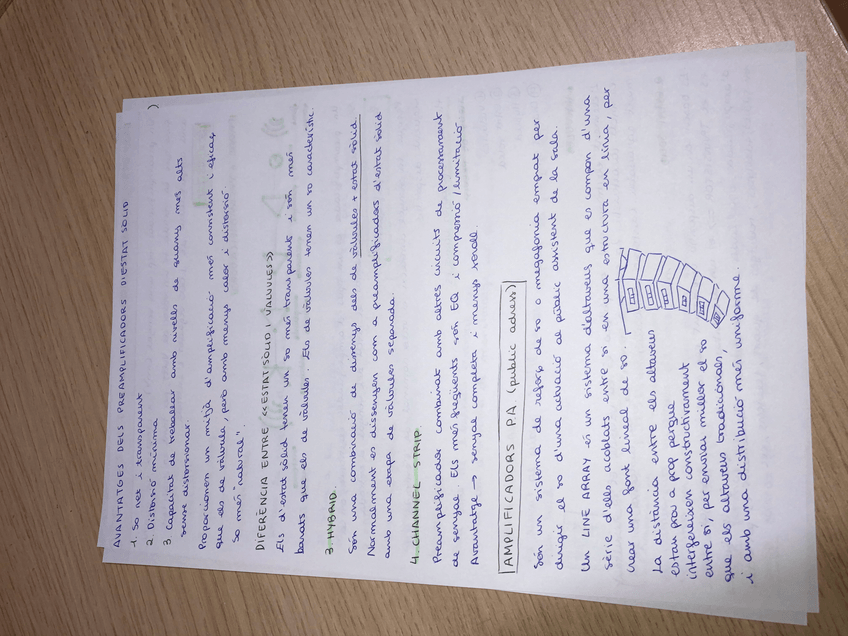 AVANTATGES DELS PREAMPLIFICADORS D'ESTAT SOLID
1. So net i transparent
2. Distosió mínima
3 Capacitat de treballar amb nivells de guany més alts
sense distorsionar.
Proporcionen un mitjà d'amplificació més consistent i eficaç
que els de vàlvula, però amb menys calor i distorsió.
So més "natural".
DIFERÈNCIA ENTRE <<ESTAT SÒLID I VALVULES>>
Els d'estat sòlid tenen un so més transparent i són més
barats que els de vàlvules. Els de vàlvules tenen un so característic.
3 HYBRID.
Són una combinació de dissenys dels de vàlvules + estat sòlid
Normalment es dissenyen com a preamplificadors d'estat sòlid
amb una etapa de vàlvules separada.
4. CHANNEL STRIP.
Preamplificador combinat amb altres circuits de processament
de senyal. Els més freqüents són EQ i compressió/limitació
Avantatge → senyal completa i menys soroll.
AMPLIFICADORS PA (public adress)
Són un sistema de reforç de so o megafonia emprat per
dirigir el so d'una actuació al públic assistent de la sala.
Un LINE ARRAY és un sistema d'altaveus que es compon d'una
sèrie d'ells acoblats entre si en una estuctura en línia, per
crear una font lineal de so.
La distancia entre els altaveus
estan pou a prop perque
interfereixen constructivament
entre si, per enviar millor el so
que els altaveus tradicionals,
i amb una distribució més uniforme.